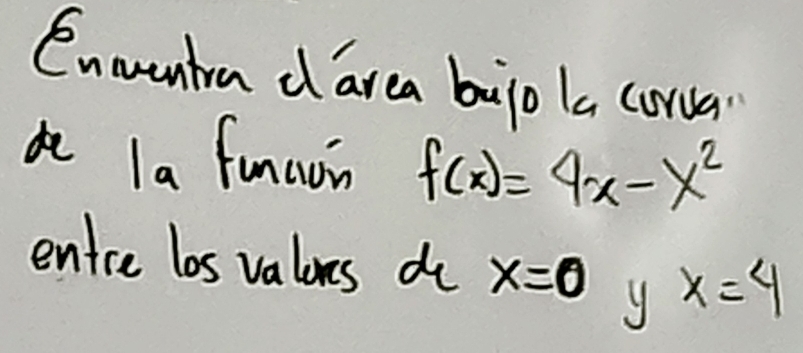 Encuentra el área bajo la curva
de la función f(x)= 4x-x²
entre los valores de x=0 y x=4